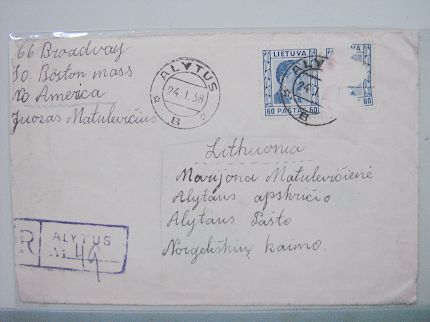 66 Broadvay
So. Boston mass
No America
Juozas Matulevičius
ALYTUS
24.1.38
B
LIETUVA
60 PAŠTAS 60
60
ALYTUS
24.1
B
Lithuonia
Marijona Matulevičienė
Alytaus apskričio
Alytaus Pašto
Norgeliškių kaimo.
R
ALYTUS
№ 49